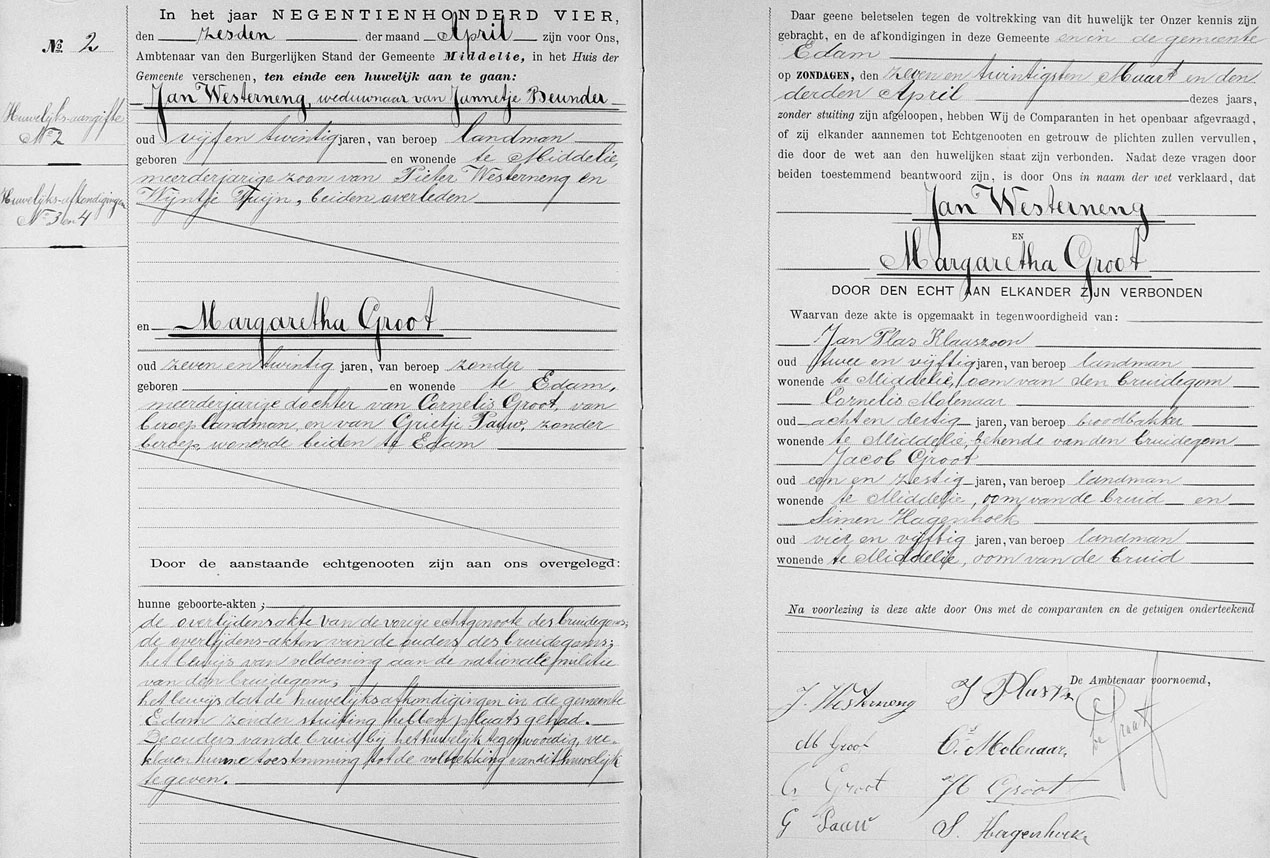 No 2
Huwelijks-aangifte
No 2
Huwelijks-afkondigingen
No 3 en 4
In het jaar NEGENTIENHONDERD VIER,
den zesden der maand April zijn voor Ons,
Ambtenaar van den Burgerlijken Stand der Gemeente Middelie, in het Huis der
Gemeente verschenen, ten einde een huwelijk aan te gaan:
Jan Westerneng, weduwnaar van Jannetje Beunder
oud vijf en twintig jaren, van beroep landman
geboren en wonende te Middelie,
meerderjarige zoon van Pieter Westerneng en
Wijntje Tuijn, beiden overleden
en Margaretha Groot
oud zeven en twintig jaren, van beroep zonder
geboren en wonende te Edam,
meerderjarige dochter van Cornelis Groot, van
beroep landman, en van Grietje Pauw, zonder
beroep, wonende beiden te Edam
Door de aanstaande echtgenooten zijn aan ons overgelegd:
hunne geboorte-akten;
de overlijdensakte van de vorige echtgenoote des bruidegoms;
de overlijdens-akten van de ouders des bruidegoms;
het bewijs van voldoening aan de nationale militie
van den bruidegom;
het bewijs dat de huwelijksafkondigingen in de gemeente
Edam zonder stuiting hebben plaats gehad.
De ouders van de bruid bij het huwelijk tegenwoordig, ver-
klaren hunne toestemming tot de voltrekking van dit huwelijk
te geven.
Daar geene beletselen tegen de voltrekking van dit huwelijk ter Onzer kennis zijn
gebracht, en de afkondigingen in deze Gemeente en in de gemeente
Edam
op ZONDAGEN, den zeven en twintigsten Maart en den
derden April dezes jaars,
zonder stuiting zijn afgeloopen, hebben Wij de Comparanten in het openbaar afgevraagd,
of zij elkander aannemen tot Echtgenooten en getrouw de plichten zullen vervullen,
die door de wet aan den huwelijken staat zijn verbonden. Nadat deze vragen door
beiden toestemmend beantwoord zijn, is door Ons in naam der wet verklaard, dat
Jan Westerneng
EN
Margaretha Groot
DOOR DEN ECHT AAN ELKANDER ZIJN VERBONDEN
Waarvan deze akte is opgemaakt in tegenwoordigheid van:
Jan Plas Klaaszoon
oud twee en vijftig jaren, van beroep landman
wonende te Middelie, oom van den bruidegom
Cornelis Molenaar
oud acht en dertig jaren, van beroep broodbakker
wonende te Middelie, bekende van den bruidegom
Jacob Groot
oud een en zestig jaren, van beroep landman
wonende te Middelie, oom van de bruid en
Simen Hagenhoek
oud vier en vijftig jaren, van beroep landman
wonende te Middelie, oom van de bruid
Na voorlezing is deze akte door Ons met de comparanten en de getuigen onderteekend
De Ambtenaar voornoemd,
J. Westerneng J Plas Kz
M Groot C. Molenaar
C Groot Groot
G Pauw S. Hagenhoek